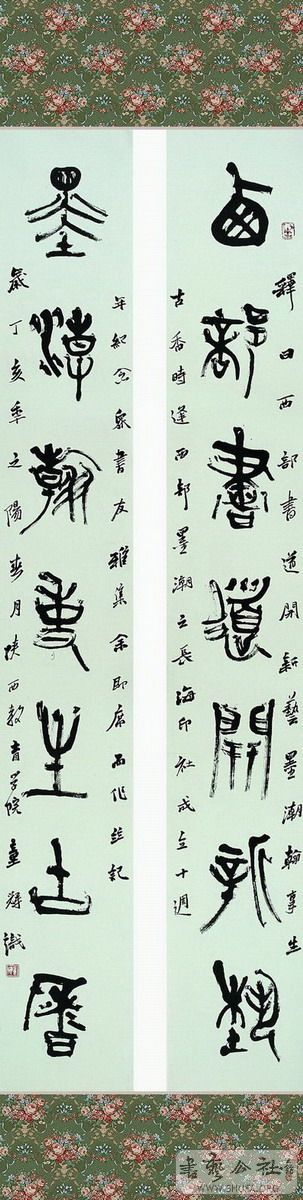 西部書道開新藝
墨潮翰事生古香
釋曰西部書道開新藝墨潮翰事生
古香時逢西部墨潮之長海印社成立十週
年紀念眾書友雅集余即席而作并記
歲丁亥季之陽春月陝西教育學院童輝識
書藝公社
WWW.SHUFA.ORG